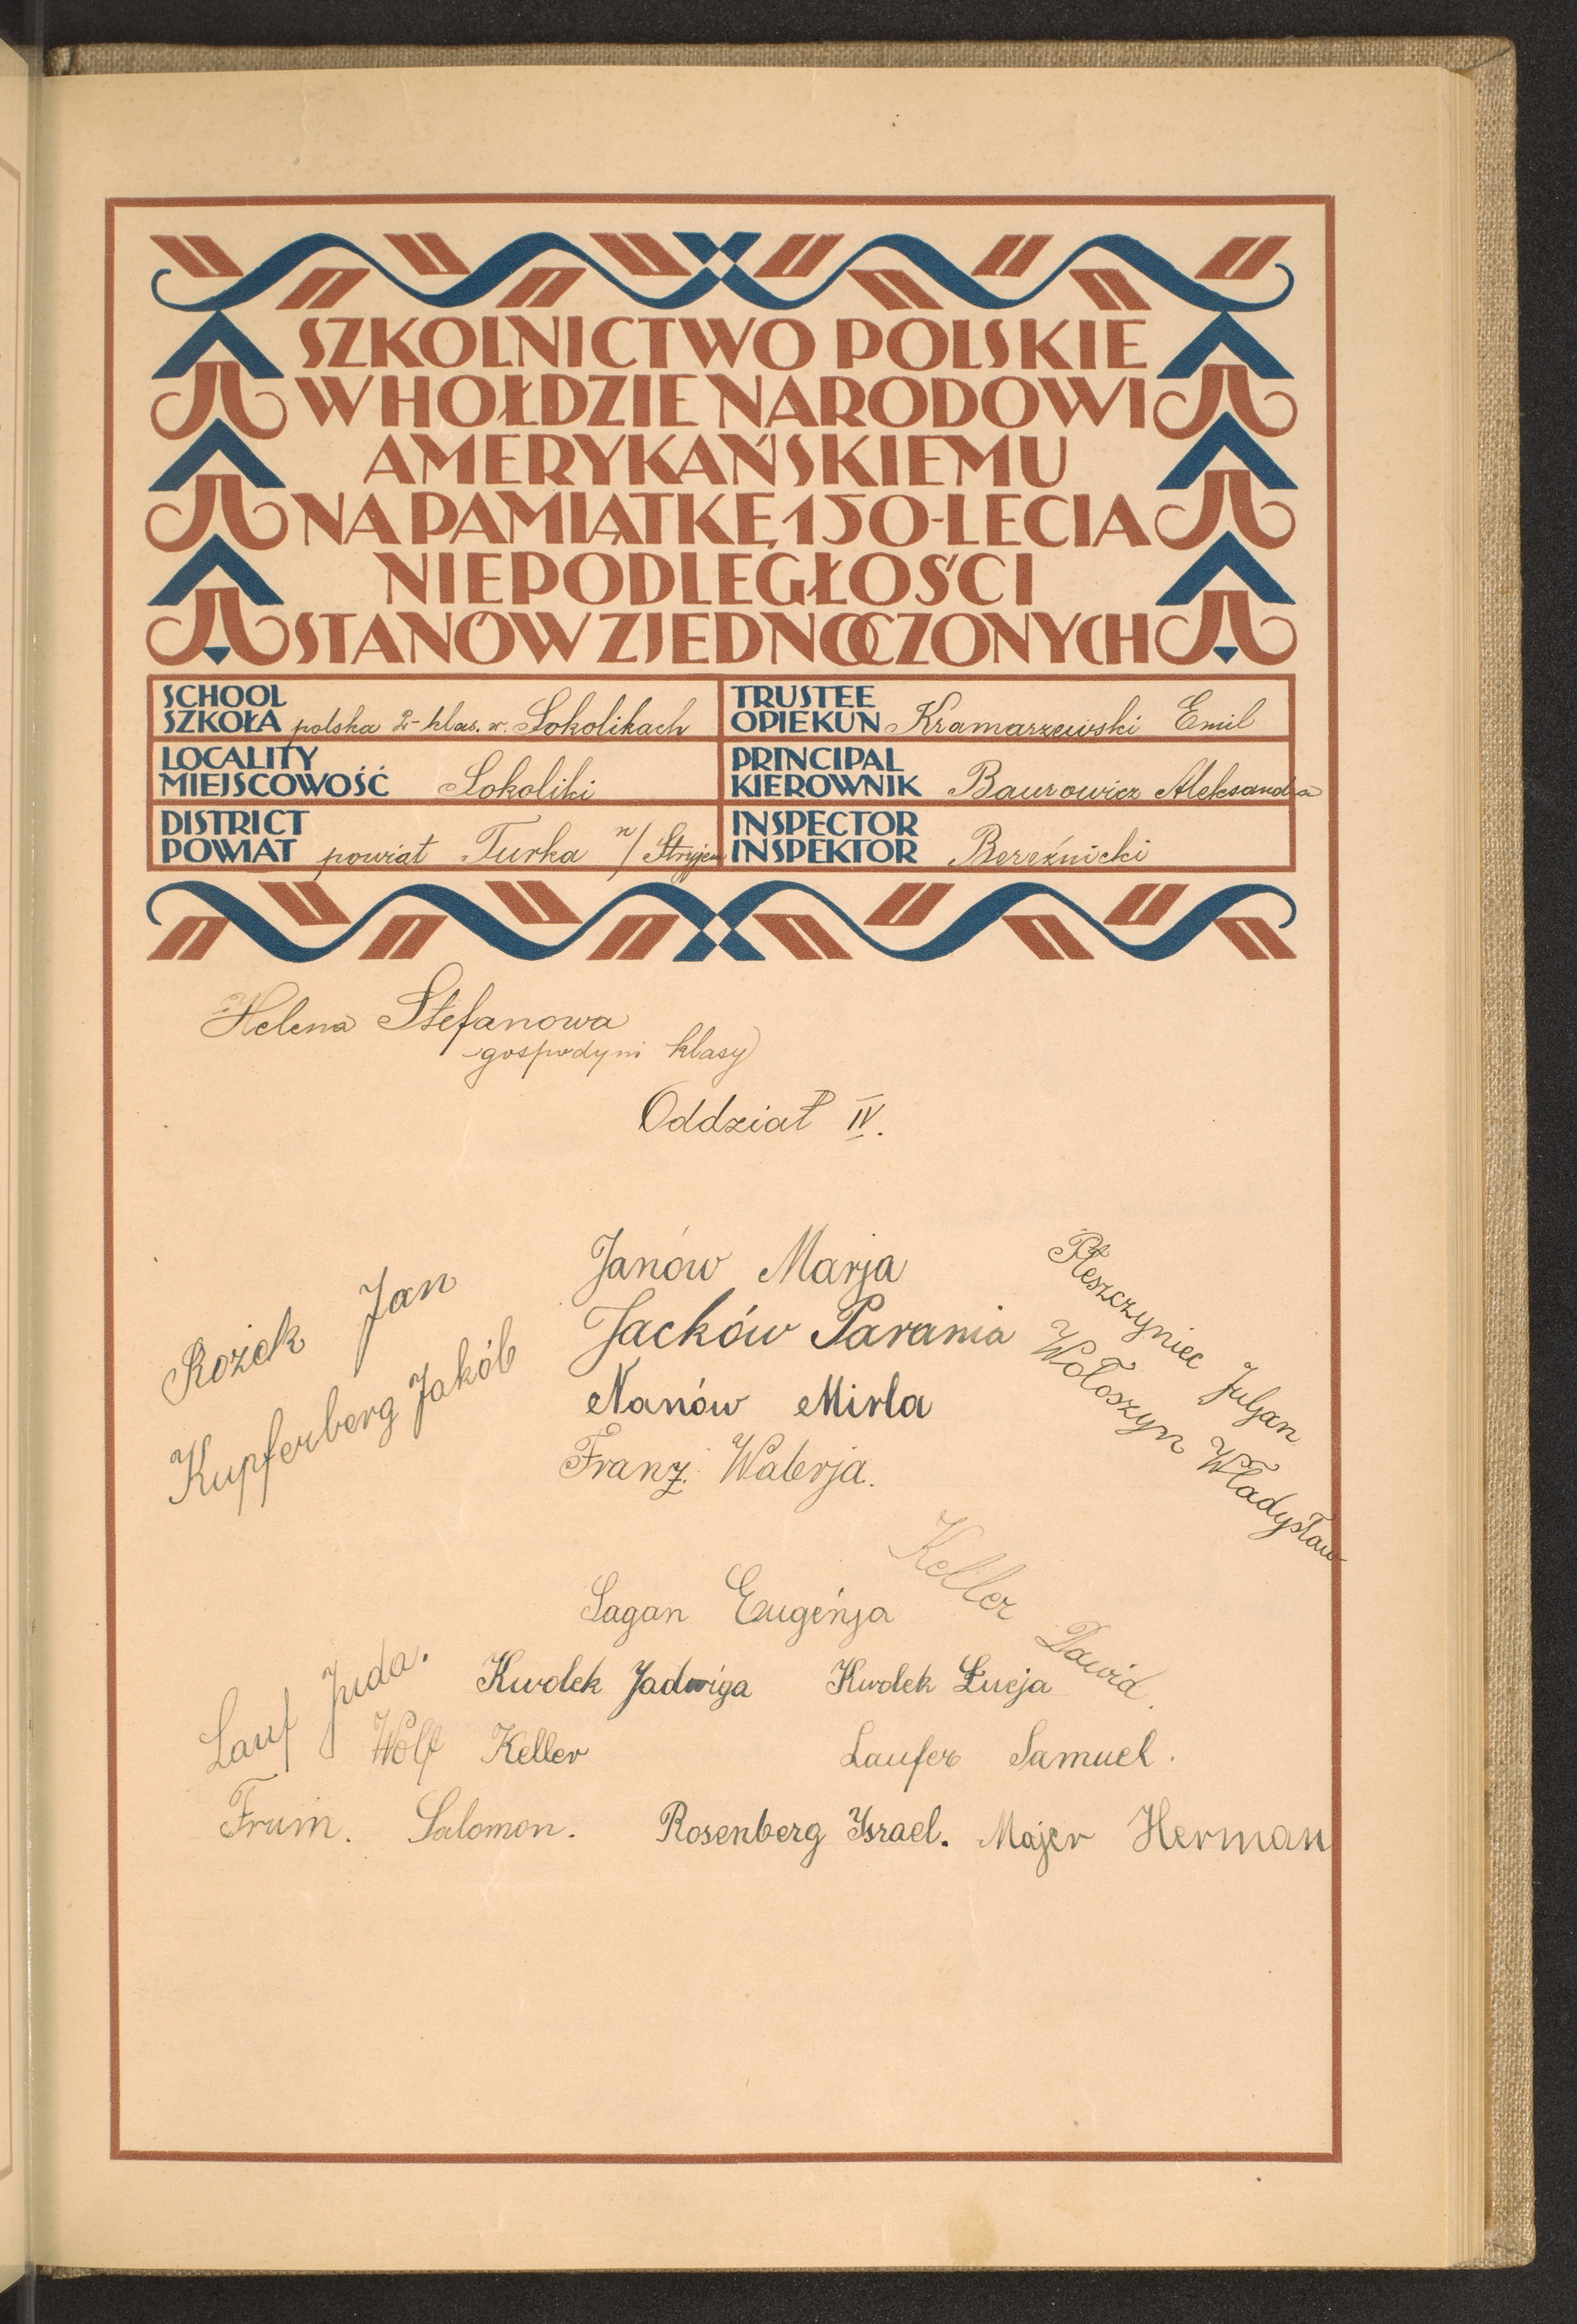 SZKOLNICTWO POLSKIE
W HOŁDZIE NARODOWI
AMERYKAŃSKIEMU
NA PAMIĄTKĘ 150-LECIA
NIEPODLEGŁOŚCI
STANÓW ZJEDNOCZONYCH
SCHOOL
SZKOŁA polska 2-klas. w. Sokolikach
TRUSTEE
OPIEKUN Kramarzewski Emil
LOCALITY
MIEJSCOWOŚĆ Sokoliki
PRINCIPAL
KIEROWNIK Baurowicz Aleksandra
DISTRICT
POWIAT powiat Turka n/Stryjem
INSPECTOR
INSPEKTOR Bereźnicki
Helena Stefanowa
gospodyni klasy
Oddział IV.
Rożek Jan
Kupferberg Jakób
Janów Marja
Jacków Parania
Nanów Mirla
Franz Walerja.
Pleszczyniec Juljan
Wołoszyn Władysław
Keller Dawid.
Sagan Eugenja
Lauf Juda.
Kwolek Jadwiga Kwolek Łucja
Wolf Keller Laufer Samuel.
Frum. Salomon. Rosenberg Ysrael. Majer Herman